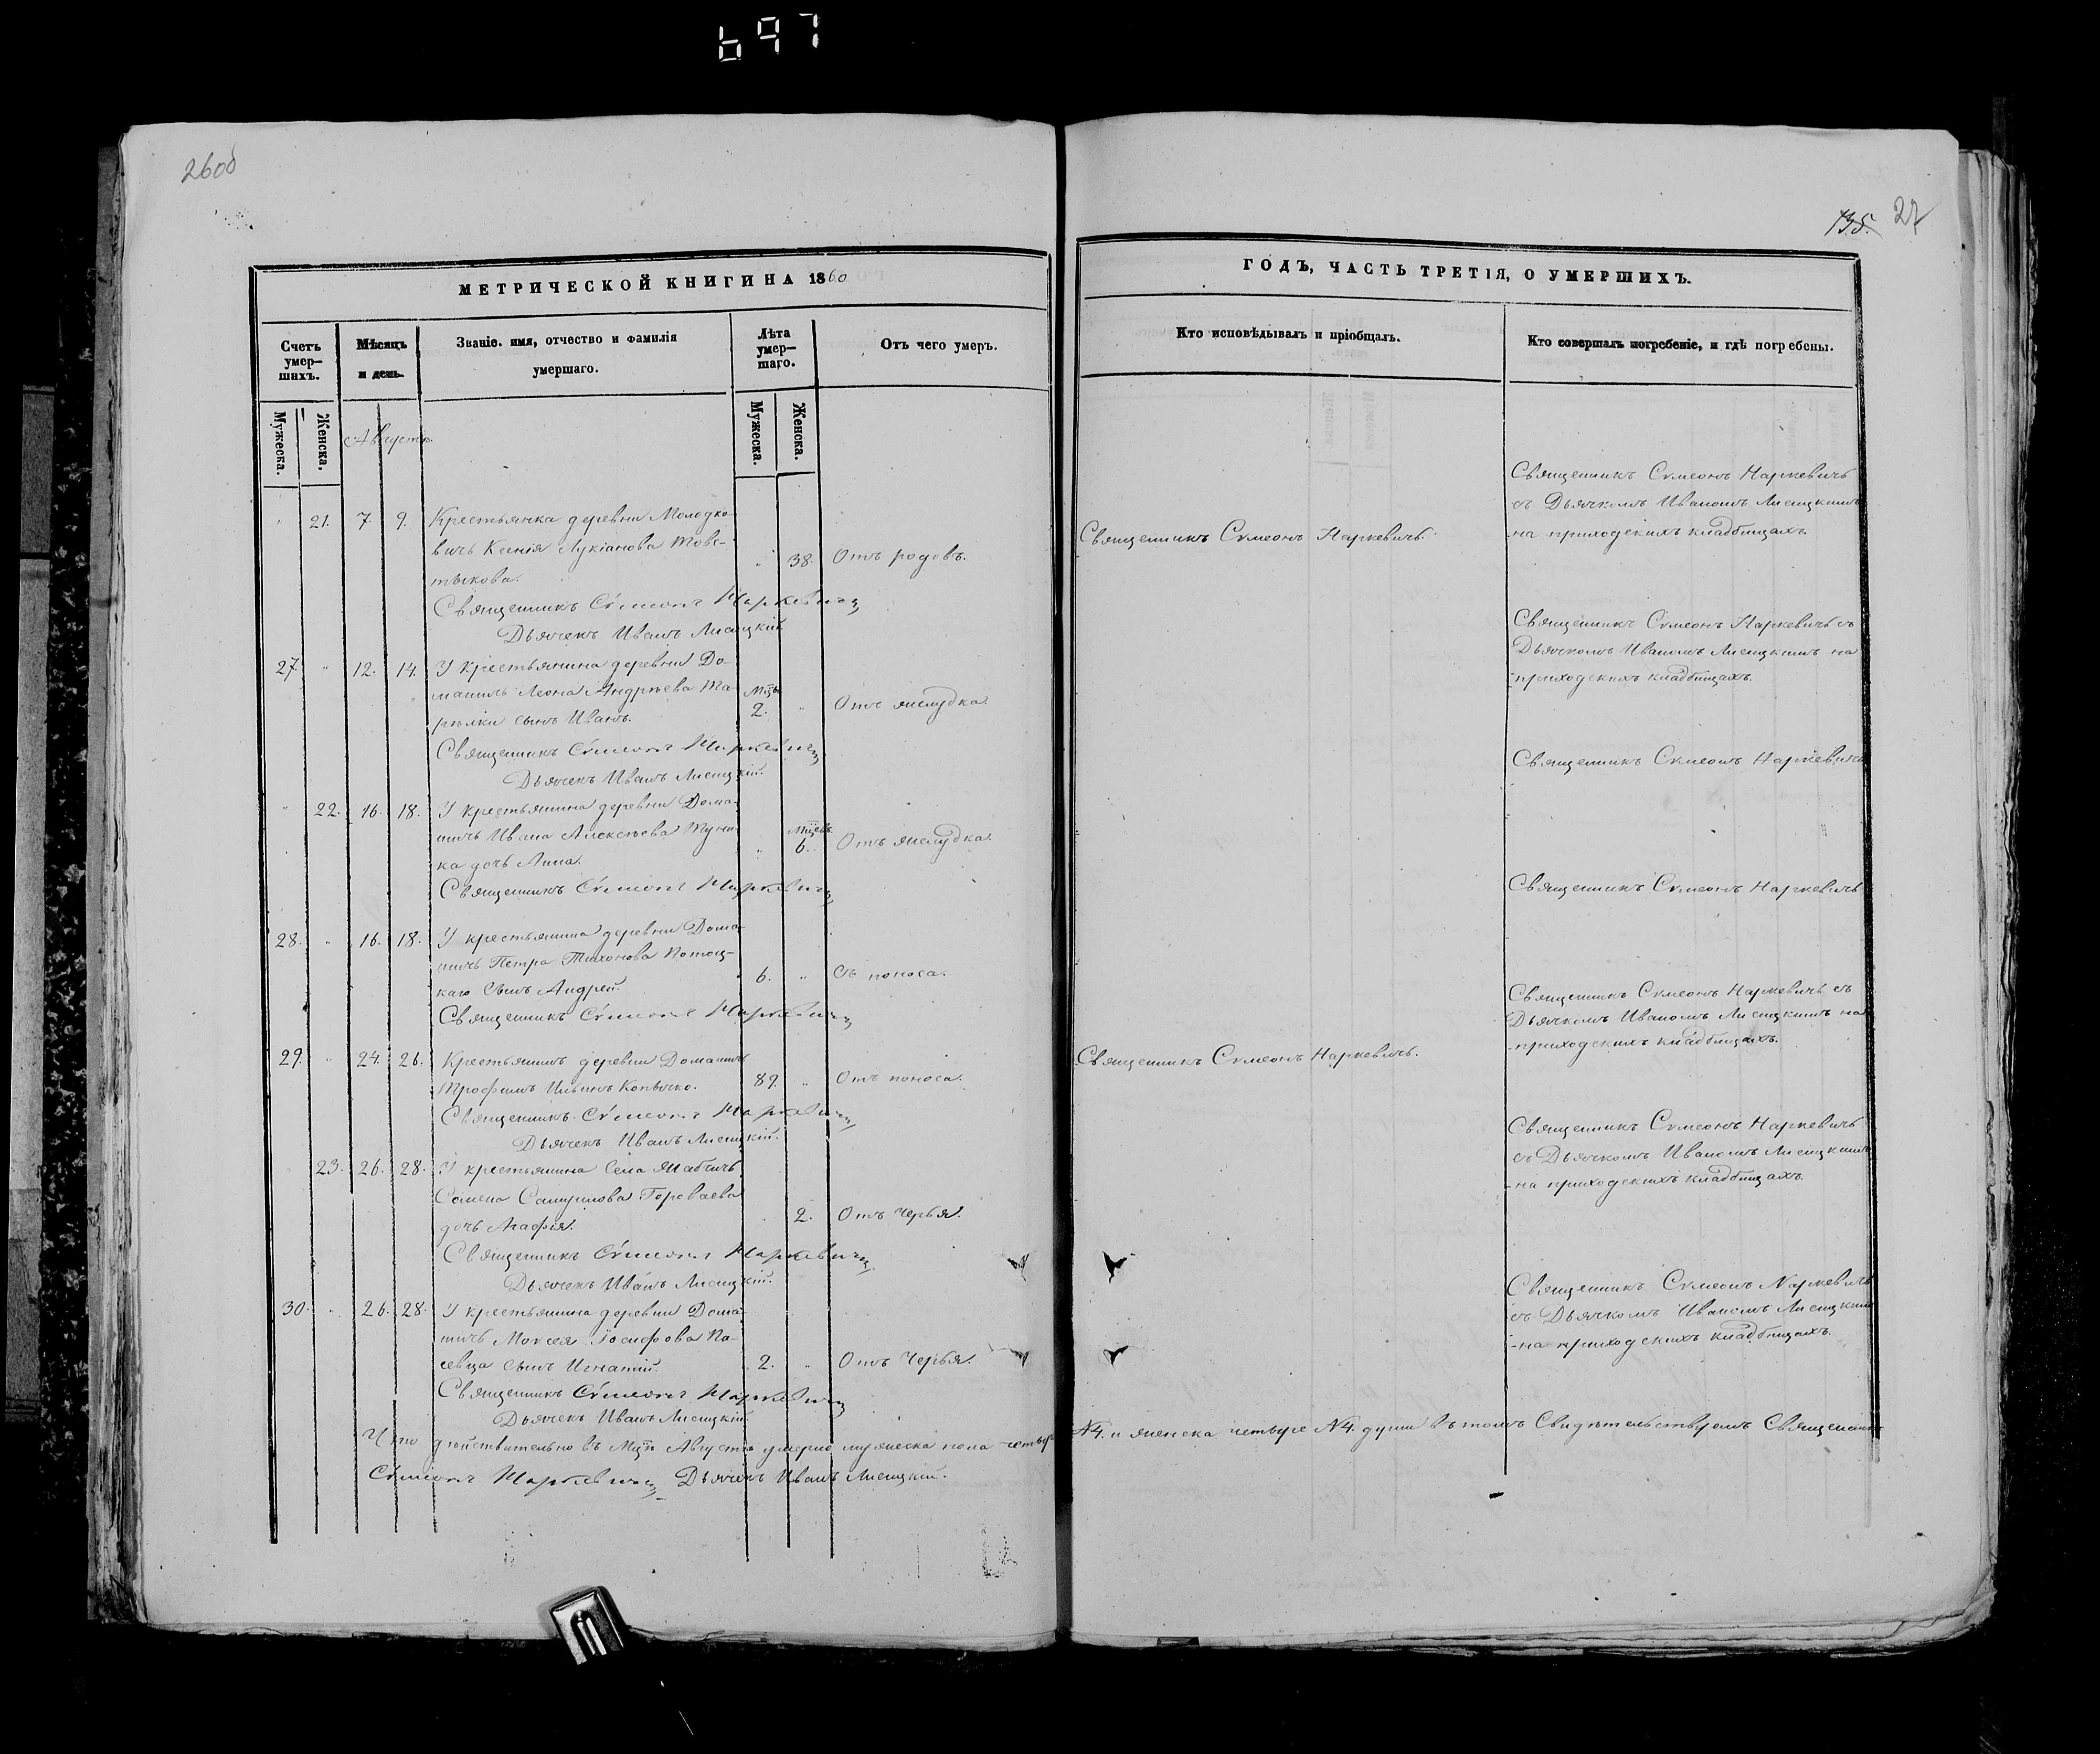 697
260об
135. 27
МЕТРИЧЕСКОЙ КНИГИ НА 1860
ГОДЪ, ЧАСТЬ ТРЕТІЯ, О УМЕРШИХЪ.
Счетъ умер-шихъ.
Мѣсяцъ и день.
Званіе, имя, отчество и фамилія умершаго.
Лѣта умер-шаго.
Отъ чего умеръ.
Кто исповѣдывалъ и пріобщалъ.
Кто совершалъ погребеніе, и гдѣ погребены.
Мужеска. Женска. Мужеска. Женска.
Августъ
" 21. 7. 9. Крестьянка деревни Молодко-
вичъ Ксенія Лукіанова Товс-
тыкова. " 38. Отъ родовъ.
Священникъ Сѵмеонъ Наркевичъ
Дьячекъ Иванъ Лисицкій
Священникъ Сѵмеонъ Наркевичъ.
Священникъ Сѵмеонъ Наркевичъ
съ Дьячкомъ Иваномъ Лисицкимъ
на приходскихъ кладбищахъ.
27. " 12. 14. У крестьянина деревни До-
маничъ Леона Андрѣева
сынъ Иванъ. Мцы 2. " Отъ желудка.
Священникъ Сѵмеонъ Наркевичъ
Дьячекъ Иванъ Лисицкій.
Священникъ Сѵмеонъ Наркевичъ съ
Дьячкомъ Иваномъ Лисицкимъ на
приходскихъ кладбищахъ.
" 22. 16. 18. У крестьянина деревни Дома-
ничъ Ивана Алексѣева
дочь Анна. " Мцевъ 6. Отъ желудка.
Священникъ Сѵмеонъ Наркевичъ
Священникъ Сѵмеонъ Наркевичъ
28. " 16. 18. У крестьянина деревни Дома-
ничъ Петра Тихонова Потоц-
каго сынъ Андрей. 6. " Съ поноса.
Священникъ Сѵмеонъ Наркевичъ
Священникъ Сѵмеонъ Наркевичъ
29. " 24. 26. Крестьянинъ деревни Доманичъ
Трофимъ Ильинъ Копычко. 89. " Отъ поноса.
Священникъ Сѵмеонъ Наркевичъ
Дьячекъ Иванъ Лисицкій.
Священникъ Сѵмеонъ Наркевичъ.
Священникъ Сѵмеонъ Наркевичъ съ
Дьячкомъ Иваномъ Лисицкимъ на
приходскихъ кладбищахъ.
23. 26. 28. У крестьянина Села
Семена
дочь Агафія. 2. Отъ червя.
Священникъ Сѵмеонъ Наркевичъ
Дьячекъ Иванъ Лисицкій.
Священникъ Сѵмеонъ Наркевичъ
съ Дьячкомъ Иваномъ Лисицкимъ
на приходскихъ кладбищахъ.
30. " 26. 28. У крестьянина деревни Дома-
ничъ Моисея Іосифова Па-
севца сынъ Игнатій. 2. " Отъ Червя.
Священникъ Сѵмеонъ Наркевичъ
Дьячекъ Иванъ Лисицкій
Священникъ Сѵмеонъ Наркевичъ
съ Дьячкомъ Иваномъ Лисицкимъ
на приходскихъ кладбищахъ.
Что дѣйствительно въ Мцѣ Августѣ умерло мужеска пола четыре №4. и женска четыре №4. души въ томъ Свидѣтельствуемъ Священникъ
Сѵмеонъ Наркевичъ, Дьячекъ Иванъ Лисицкій.